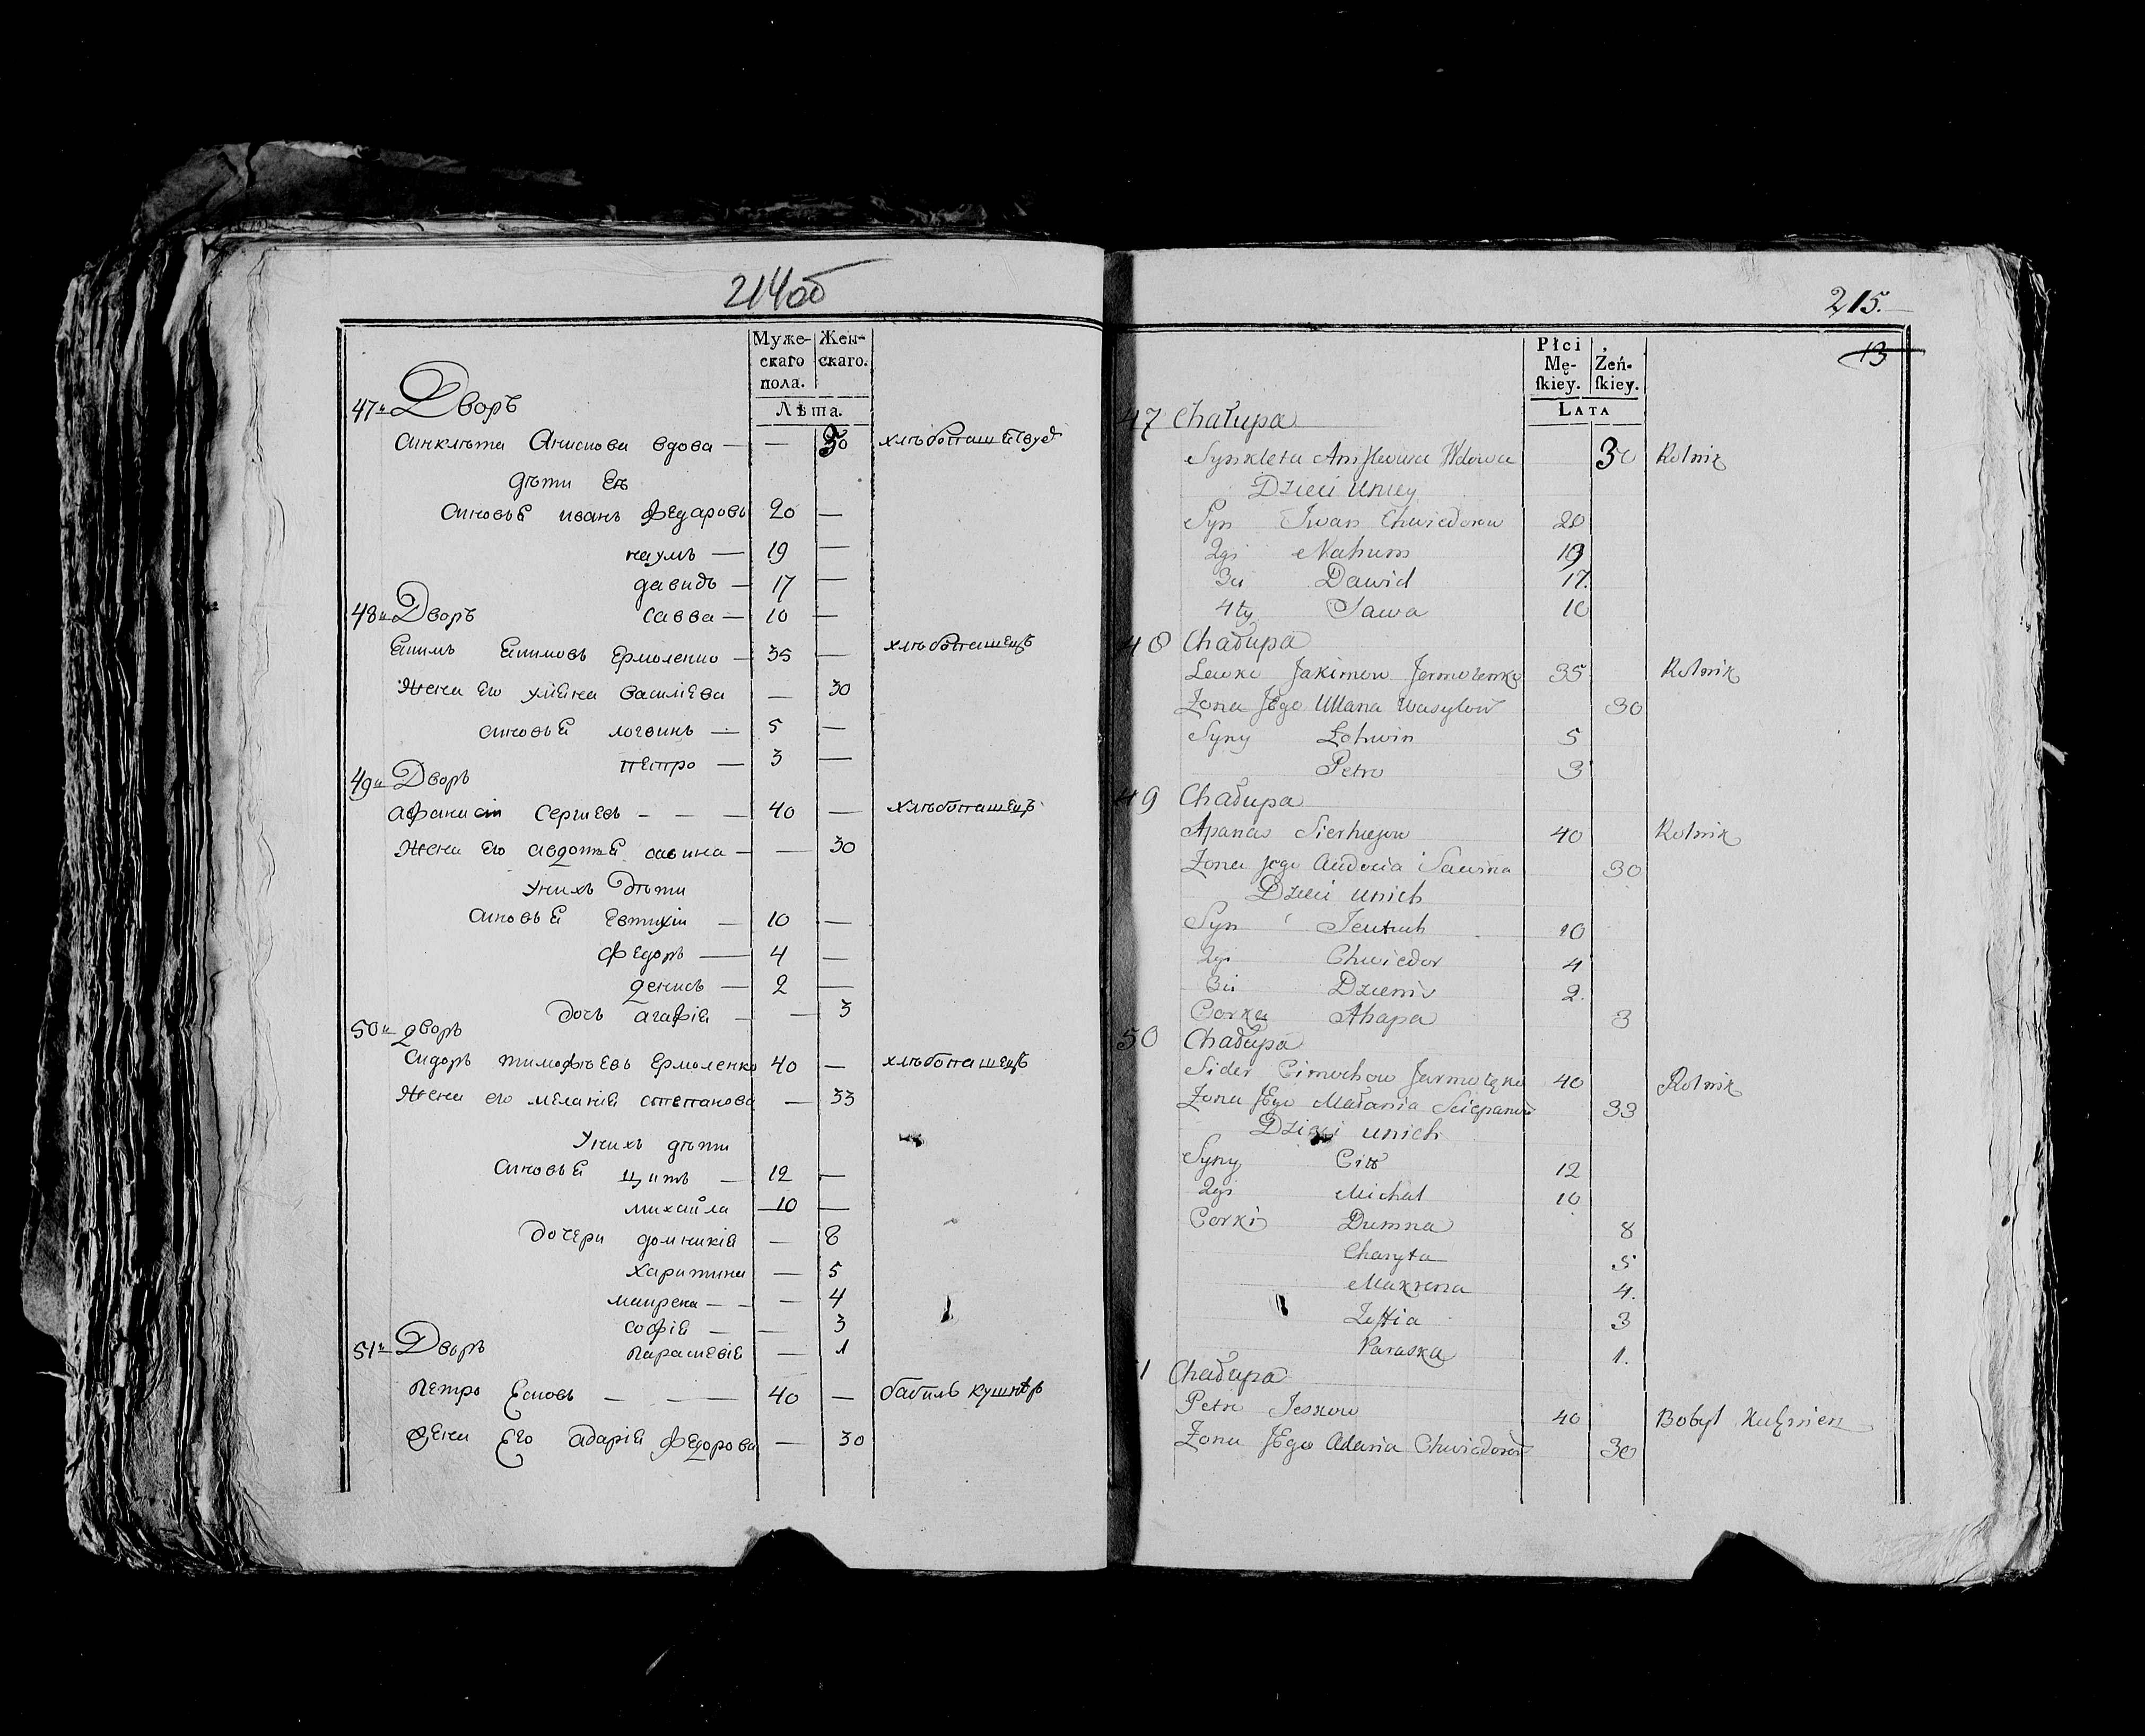 214об
Муже-
скаго
пола.
Жен-
скаго.
Лѣта.
47й Дворъ
синклѣта Анисиова вдова — — 50 хлѣбопашествует
дѣти Ея
синовья иванъ Федаровъ 20 —
наумъ — 19 —
давидъ — 17 —
48й Дворъ савва — 10 —
Якимъ Якимовъ Ермоленко — 35 — хлѣбопашецъ
Жена Его улiяна василiева — 30
синовья логвинъ — 5 —
петро — 3 —
49й Дворъ
афанасiй Сергиевъ - — — 40 — хлѣбопашецъ
Жена Его авдотья савина — — 30
У них дѣти
синовья Евтихiй — 10 —
Федоръ — 4 —
денисъ — 2 —
дочъ агафiя — — 3
50й дворъ
Сидоръ тимофѣевъ Ермоленко 40 — хлѣбопашецъ
Жена его меланiя степанова — 33
У нихъ дѣти
синовья цитъ — 12 —
михайла — 10 —
дочери домникiя — 8
харитина — 5
макрена - - — 4
софiя — — 3
51й Дворъ параскевiя — 1
петро Есковъ — — — 40 — бабиль кушнѣр
Жена Его адарiя Федорова — 30
215.
13
Płci
Mę-
ſkiey.
Żeń-
ſkiey.
LATA
47 Chałupa
Synkleta Wdowa 30 Rolnik
Dzieci Uniey
Syn Iwan Chwiedorow 20
2gi Nahum 19
3ci Dawid 17.
4ty Sawa 10
48 Chałupa
Jakimow Jermolenko 35 Rolnik
Zona Jego Ullana Wasylow 30
Syny Lohwin 5
Petro 3
49 Chałupa
Apanas Sierhejow 40 Rolnik
Zona jego Audocia Sawina 30
Dzieci unich
Syn Jeutuch 10
2gi Chwiedor 4
3ci Dzienis 2.
Corka Ahapa 3
50 Chałupa
Sider Cimochow Jarmolenko 40 Rolnik
Zona JEgo Małania Sciepanow 33
Dzieci unich
Syny Citt 12
2gi Michał 10
Corki Dumna 8
Charyta 5
Makrena 4.
Zoffia 3
Paraska 1.
1 Chałupa
Petro Jeskow 40 Bobyl Kusznierz
Zona JEgo Adaria Chwiedorow 30